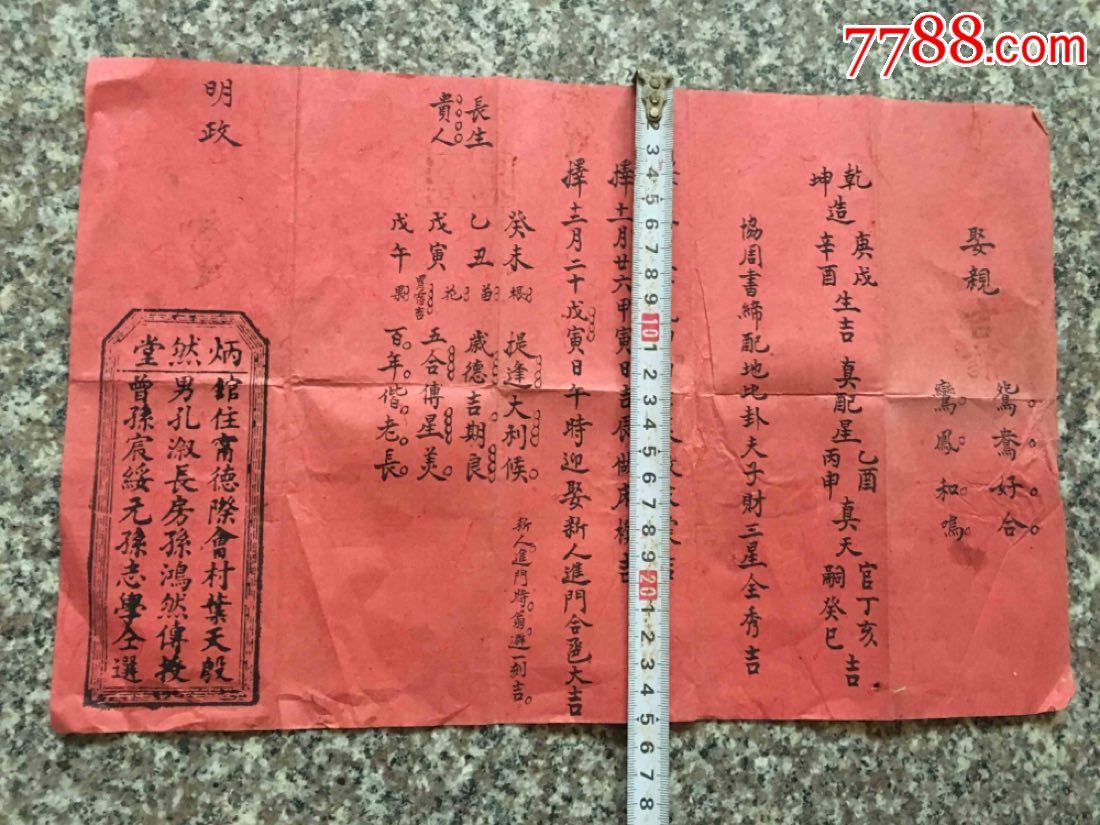 7788.com
娶親吉
鴛鴦好合
鸞鳳和鳴
乾造庚戌生吉 真配星乙酉 真天官丁亥吉
坤造辛酉生吉 真配星丙申 真天嗣癸巳吉
協周書締配地比卦夫子財三星全秀吉
擇十二月廿六甲寅日吉辰做席極吉
擇十二月二十戊寅日午時迎娶新人進門合巹大吉
新人進門時翁避一刻吉
癸未 根 提逢大利候
乙丑 苗 歲德吉期良
戊寅 花 五合傳星美
戊午 百年偕老長
長生
貴人
明政
炳然堂
舘住甯德際會村葉天殷
男孔淑長房孫鴻然傳授
曾孫宸綏元孫志學仝選
2 3 4 5 6 7 8 9 10 1 2 3 4 5 6 7 8 9 20 1 2 3 4 5 6 7 8